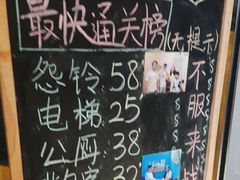 最快通关榜
(无提示)
怨铃 58
电梯 25
公厕 38
32
不服来战